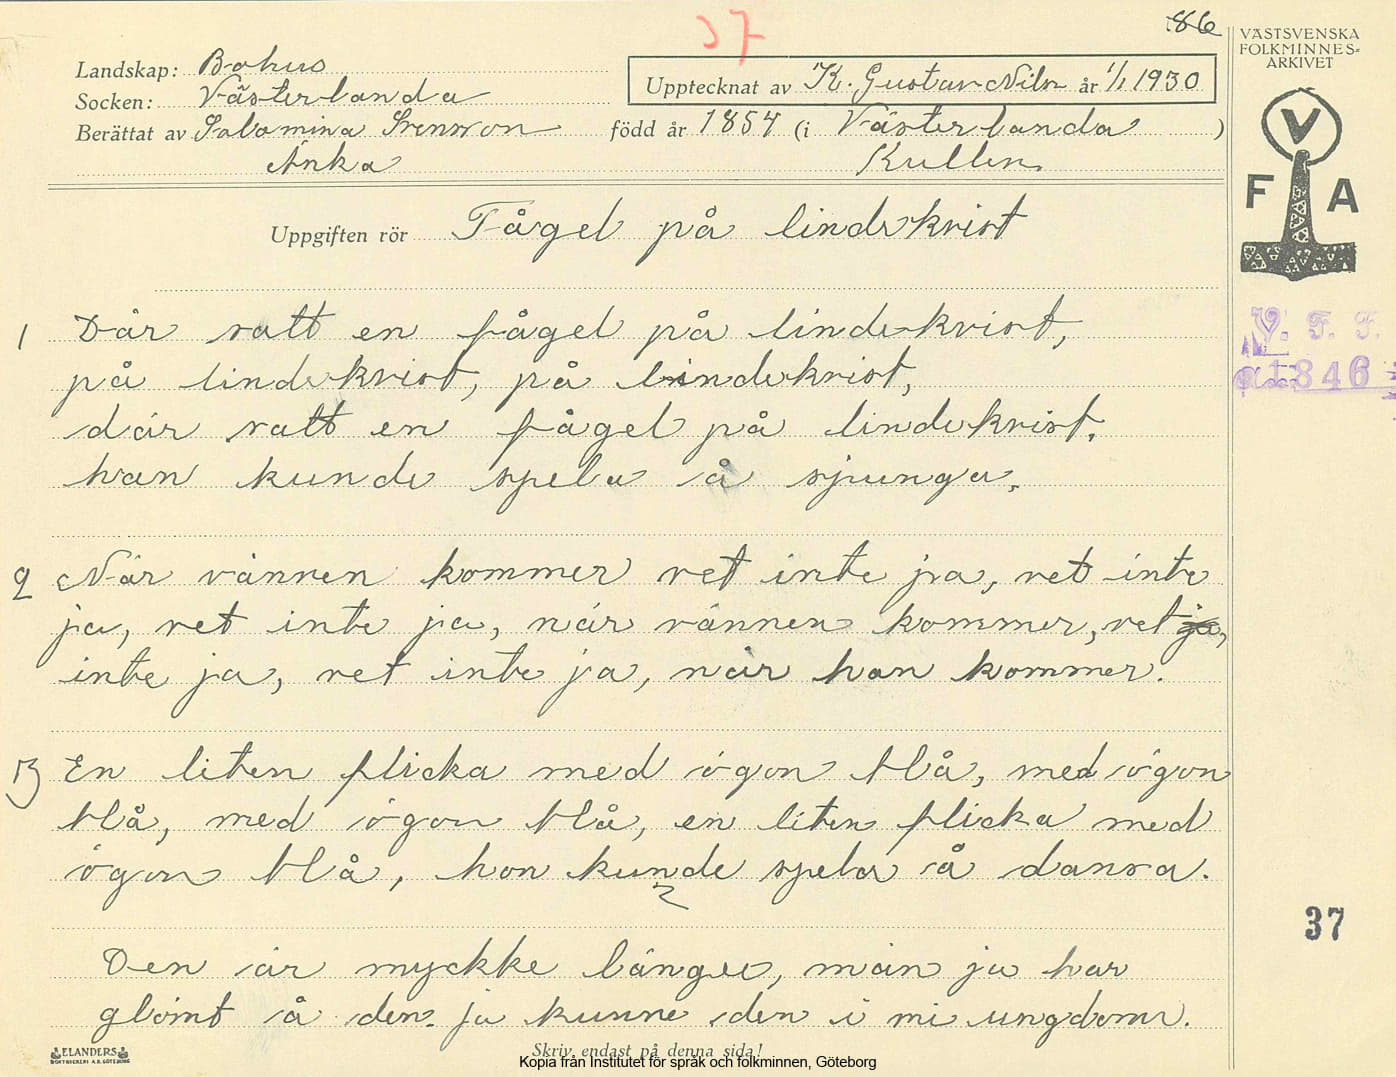 37
86
VÄSTSVENSKA
FOLKMINNES-
ARKIVET
Landskap: Bohus
Socken: Västerlanda
Upptecknat av K. Gustav Nilsn år 1/1 1930
Berättat av Salomina Svensson född år 1854 (i Västerlanda )
Änka Kullen
V
F A
Uppgiften rör Fågel på lindekvist
V. F. F.
1846
1 Där satt en fågel på lindekvist,
på lindekvist, på lindekvist,
där satt en fågel på lindekvist.
han kunde spela å sjunga.
2 När vännen kommer vet inte ja, vet inte
ja, vet inte ja, när vännen kommer, vet ja,
inte ja, vet inte ja, när han kommer.
3 En liten flicka med ögon blå, med ögon
blå, med ögon blå, en liten flicka med
ögon blå, hon kunde spela å dansa.
37
Den är myckke länger, män ja har
glömt å den. ja kunne den i mi ungdom.
ELANDERS
BOKTRYCKERI A.B. GÖTEBORG
Skriv endast på denna sida!
Kopia från Institutet för språk och folkminnen, Göteborg